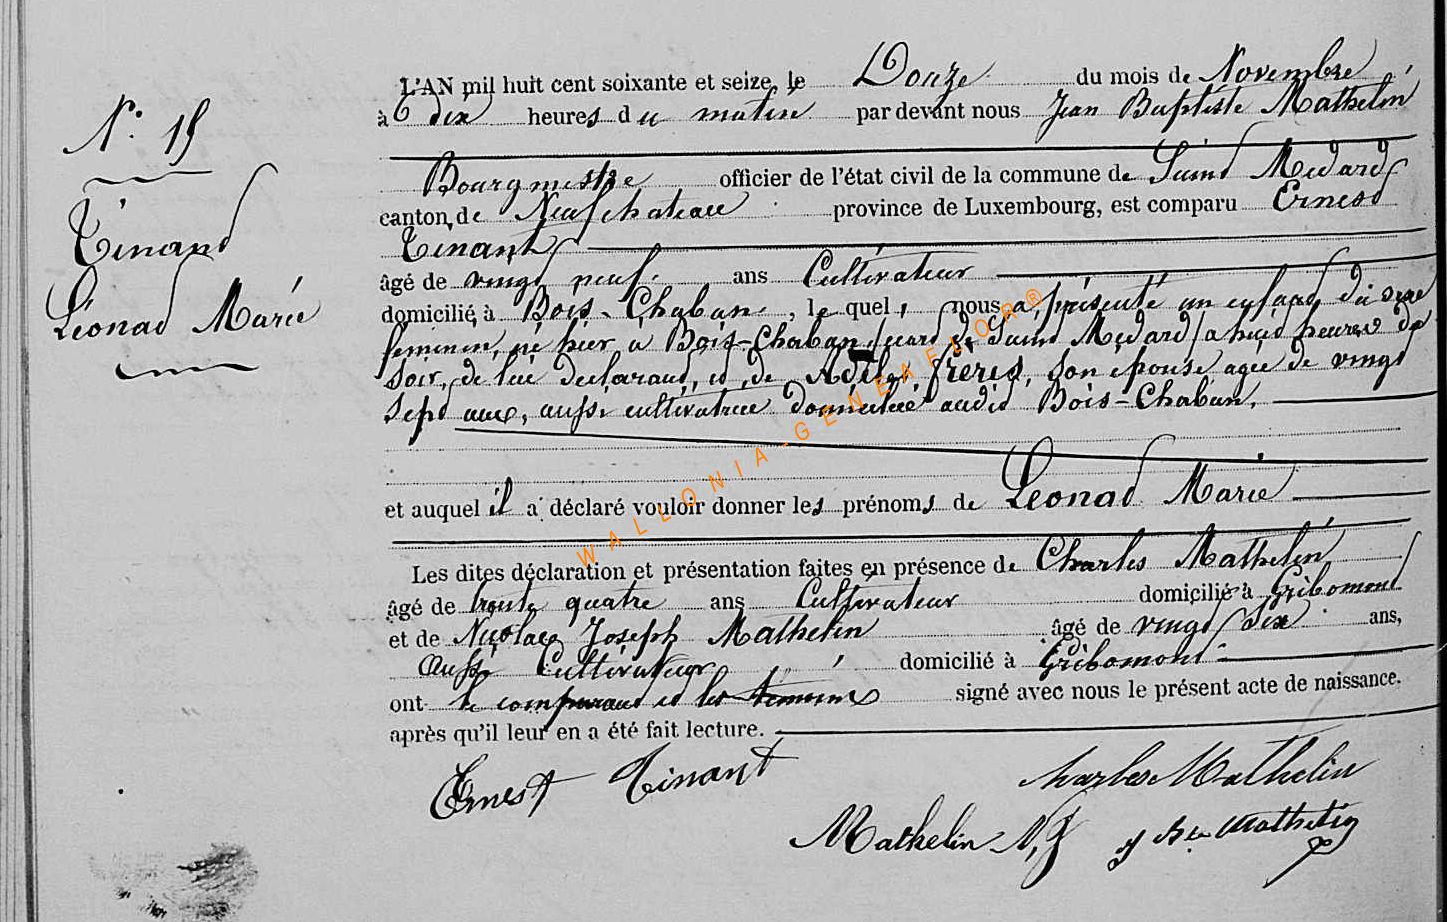 L'AN mil huit cent soixante et seize, le Douze du mois de Novembre
à dix heures du matin par devant nous Jean Baptiste Mathelin
Bourgmestre officier de l'état civil de la commune de Saint Médard
canton de Neufchateau province de Luxembourg, est comparu Ernest
Tinant
âgé de vingt neuf ans Cultivateur
domicilié à Bois-Chaban, le quel nous a présenté un enfant du sexe
feminin, né hier à Bois-Chaban, de Saint Médard, a huit heures du
soir, de lui déclarant, et de Adile frères, son épouse agée de vingt
sept ans, aussi cultivatrice domiciliée audit Bois-Chaban.
et auquel il a déclaré vouloir donner les prénoms de Léonad Marie
Les dites déclaration et présentation faites en présence de Charles Mathelin
âgé de trente quatre ans Cultivateur domicilié à Gribomont
et de Nicolas Joseph Mathelin âgé de vingt six ans,
aussi Cultivateur domicilié à Gribomont
ont le comparant et les témoins signé avec nous le présent acte de naissance.
après qu'il leur en a été fait lecture.
Ernest Tinant
Charles Mathelin
Mathelin N, J
J Bte Mathelin
N° 15
Tinant
Léonad Marie
WALLONIA-GENEAFLOR®